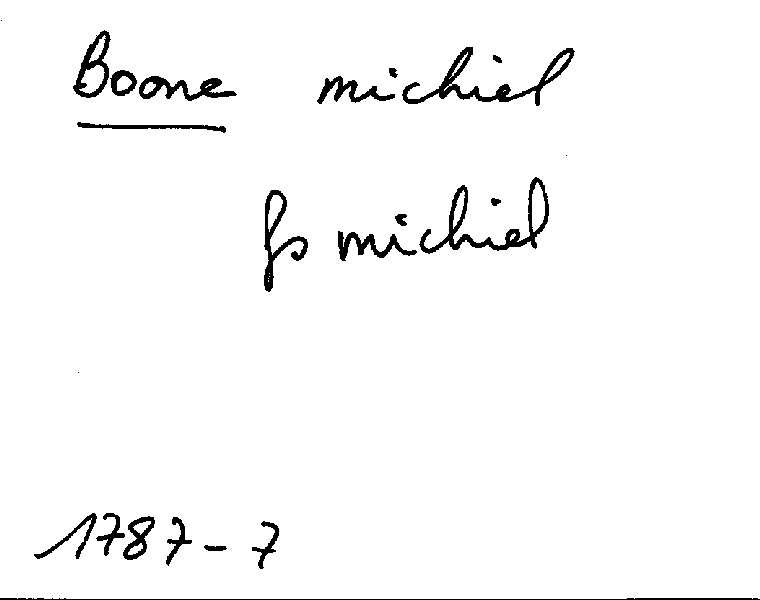 Boone michiel
fs michiel
1787-7